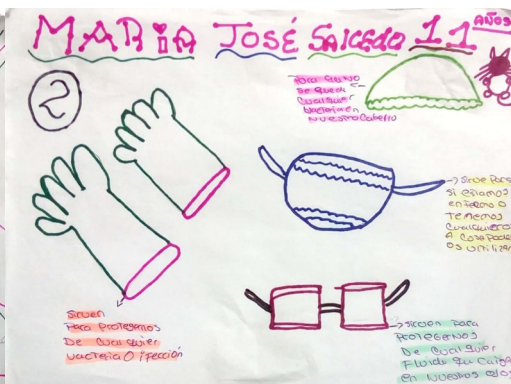 MARIA JOSÉ SALCEDO 11 AÑOS
2
Para que no
Se quede
Cualquier
bacteria en
Nuestro Cabello
Sirve Para
Si Estamos
enfermo O
Tenemos
Cualquier
A Cosa Pode
os Utilizar
Sirven
Para Protegernos
De Cualquier
vacteria O ifección
sirven Para
Protegernos
De Cualquier
Fluido Que Caiga
en Nuestros ojos